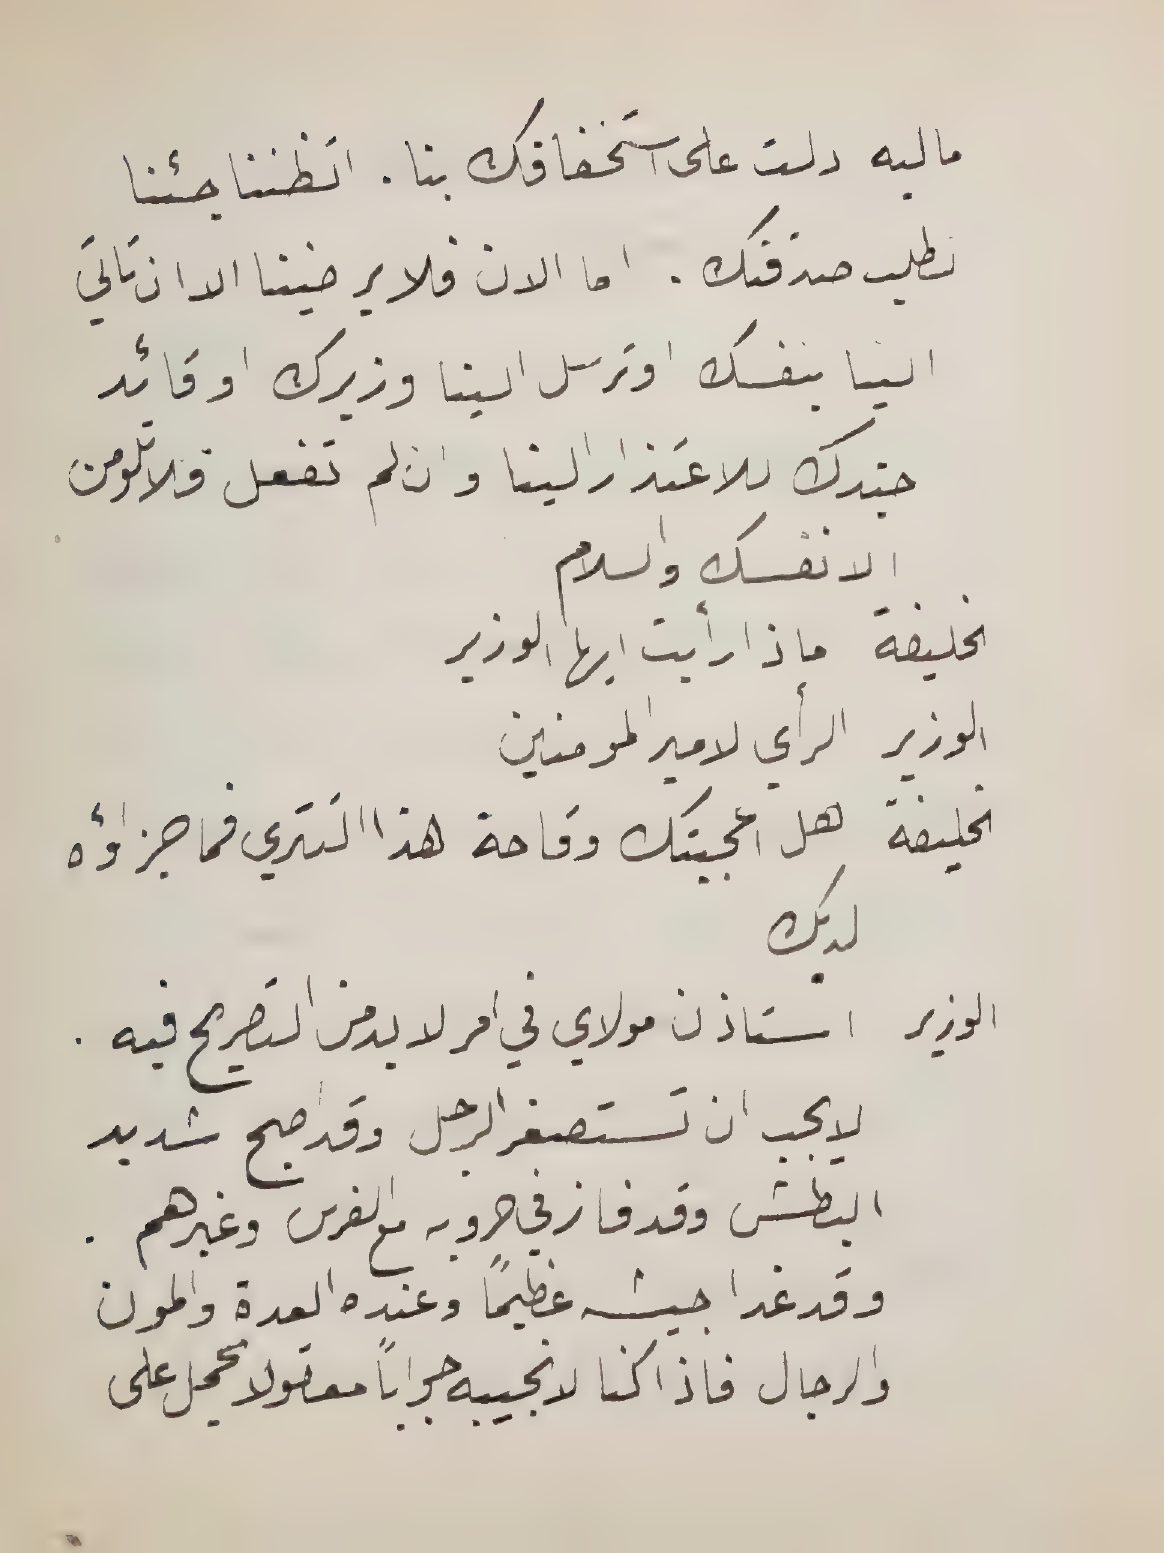 ماليه دلت على استخفافك بنا . اتظننا جئنا
نطلب صدقتك . اما الان فلا يرضينا الا ان تأتي
الينا بنفسك او ترسل الينا وزيرك او قائد
جندك للاعتذار الينا وان لم تفعل فلا تلومن
الا نفسك والسلام
الخليفة ماذا رأيت ايها الوزير
الوزير الرأي لامير المومنين
الخليفة هل اعجبتك وقاحة هذا التتري فما جزاؤه
لديك
الوزير استاذن مولاي في امر لا بد من التصريح فيه .
لا يجب ان تستصغر الرجل وقد اصبح شديد
البطش وقد فاز في حروبه مع الفرس وغيرهم .
وقد غدا جيشه عظيمًا وعنده العدة والمون
والرجال فاذا كنا لا نجيبه جوابًا معقولا يحمل على